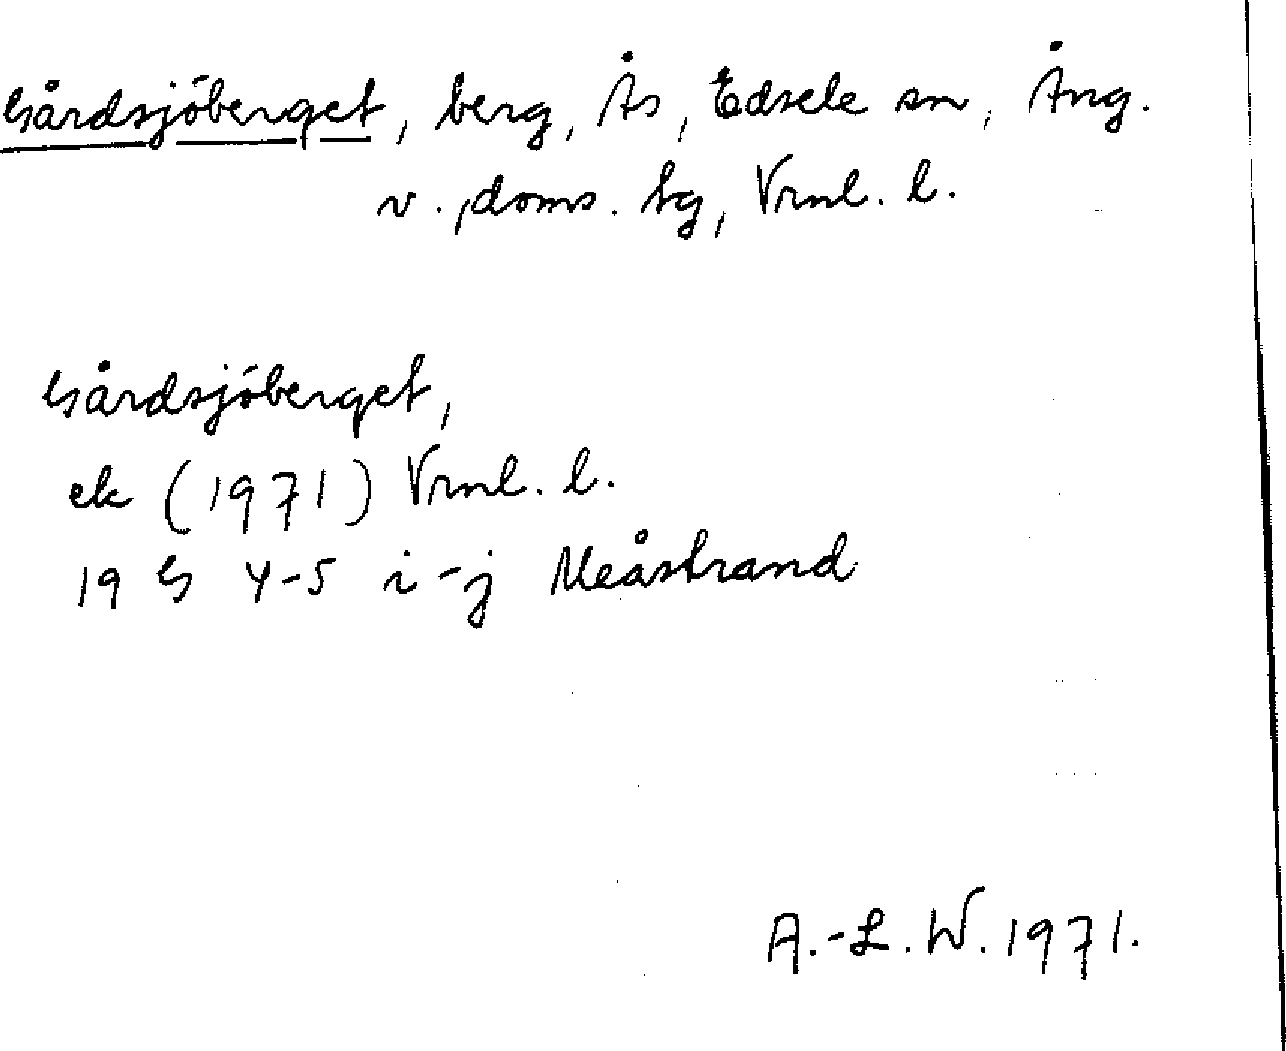 Gårdsjöberget, berg, Ås, Edsele sn, Ång.
v. doms. tg, Vrnl. l.
Gårdsjöberget,
ek (1971) Vrnl. l.
19 G 4-5 i-j Meåstrand
A.-L. W. 1971.